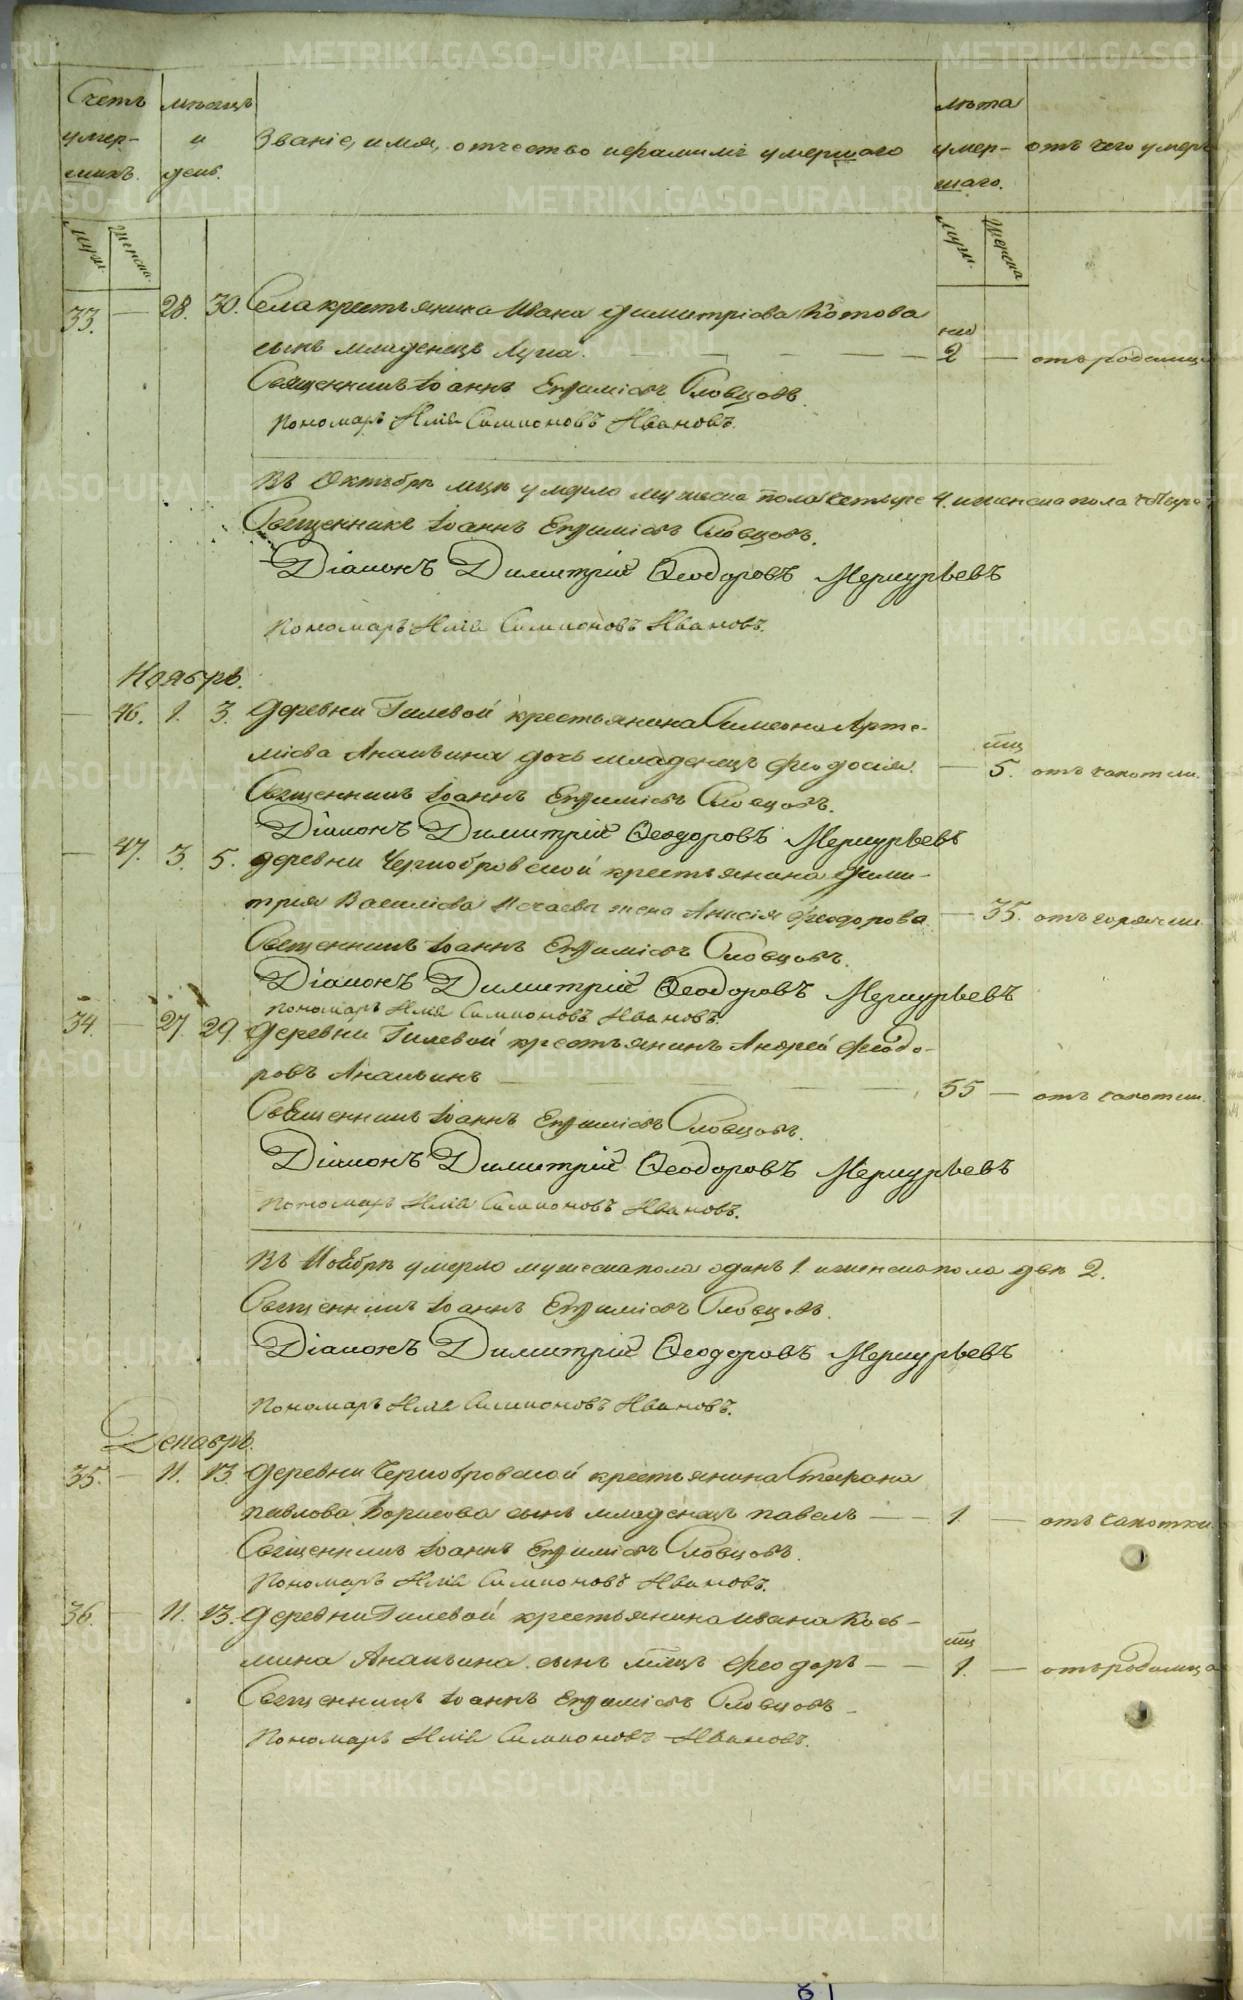 Счетъ умер-шихъ.
мѣсяцъ и день.
Званіе, имя, отчество и фамиліе умершаго
лѣта умер-шаго.
отъ чего умеръ
мужс.
женска.
мужс.
женска
33. — 28. 30. Села крестьянина Ивана Димитріева Котова
нед
сынъ младенецъ Лука. — — — — 2 — отъ родимца
Священникъ Іоаннъ Евфиміевъ Словцовъ.
Пономарь Илія Симионовъ Ивановъ.
Въ Октябрѣ мцѣ умерло мужеска пола четыре 4. и женска пола
Священникъ Іоаннъ Евфиміевъ Словцовъ.
Діаконъ Димитрій Ѳеодоровъ Меркурьевъ
Пономарь Илія Симионовъ Ивановъ.
Ноябрь.
— 46. 1. 3. деревни Гилевой крестьянина Симеона Арте-
міева Ананьина дочь младенецъ Феодосія.
мц
— 5. отъ чахотки.
Священникъ Іоаннъ Евфиміевъ Словцовъ.
Діаконъ Димитрій Ѳеодоровъ Меркурьевъ
— 47. 3. 5. деревни Чернобровской крестьянина Дими-
трія Василіева Нечаева жена Анисія Феодорова — 35. отъ горячки
Священникъ Іоаннъ Евфиміевъ Словцовъ.
Діаконъ Димитрій Ѳеодоровъ Меркурьевъ
Пономарь Илія Симионовъ Ивановъ.
34. — 27. 29. деревни Гилевой крестьянинъ Андрей Феодо-
ровъ Ананьинъ — — — 55 — отъ чахотки.
Священникъ Іоаннъ Евфиміевъ Словцовъ.
Діаконъ Димитрій Ѳеодоровъ Меркурьевъ
Пономарь Илія Симионовъ Ивановъ.
Въ Ноябрѣ умерло мужеска пола одинъ 1. и женска пола двѣ 2.
Священникъ Іоаннъ Евфиміевъ Словцовъ.
Діаконъ Димитрій Ѳеодоровъ Меркурьевъ
Пономарь Илія Симионовъ Ивановъ.
Декабрь.
35. — 11. 13. деревни Чернобровской крестьянина Стефана
Павлова Борисова сынъ младенецъ Павелъ — — 1. — отъ чахотки.
Священникъ Іоаннъ Евфиміевъ Словцовъ.
Пономарь Илія Симионовъ Ивановъ.
36. — 11. 13. деревни Гилевой крестьянина Ивана Козь-
мина Ананьина сынъ млцъ Феодоръ — —
мц
1. — отъ родимца
Священникъ Іоаннъ Евфиміевъ Словцовъ
Пономарь Илія Симионовъ Ивановъ.
METRIKI.GASO-URAL.RU